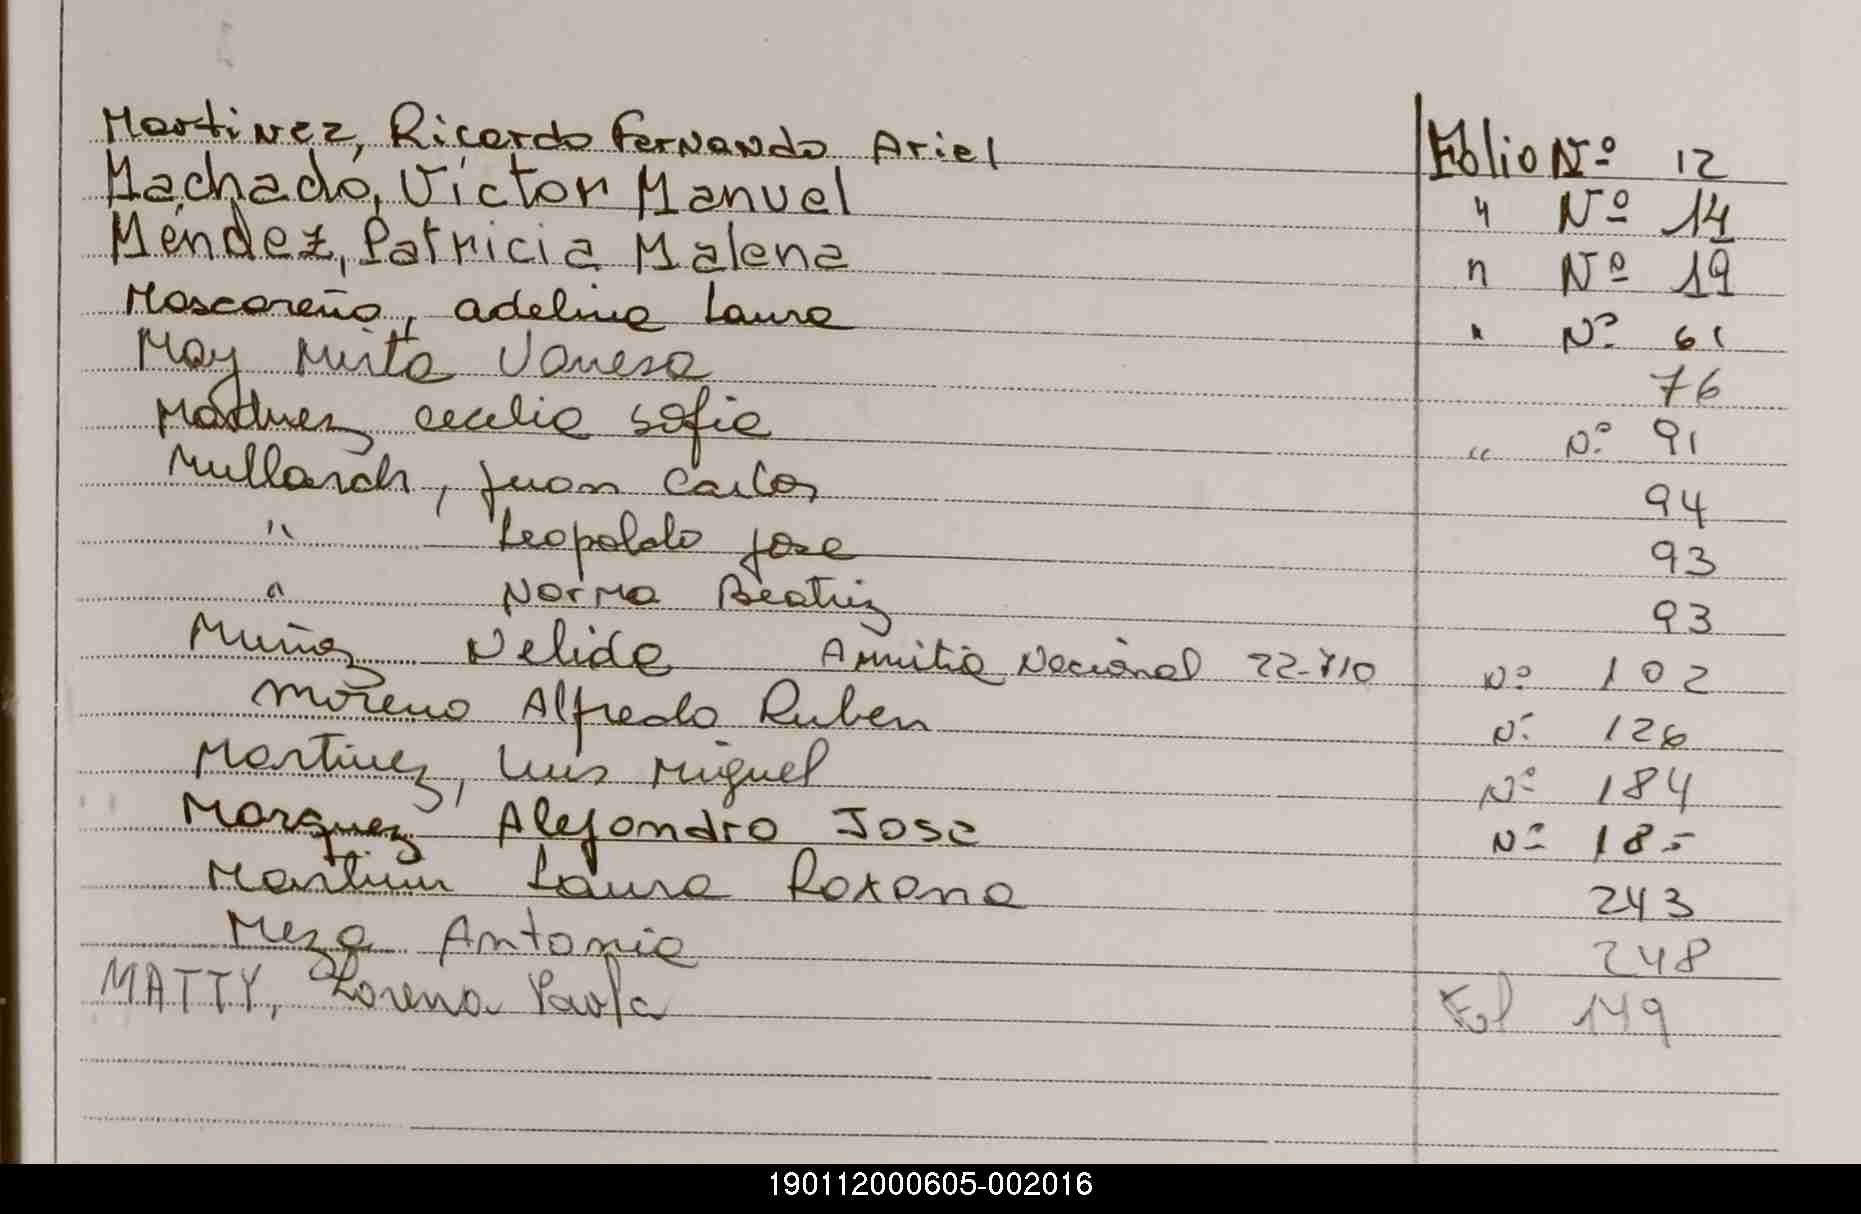 Martinez, Ricardo Fernando Ariel Folio Nº 12
Machado, Víctor Manuel " Nº 14
Méndez, Patricia Malena " Nº 19
Moscoreño, Adelina Laura " Nº 61
May Mirta Vanesa 76
Martinez Cecilia Sofia " Nº 91
Mullarch, Juan Carlos 94
" Leopoldo Jose 93
" Norma Beatriz 93
Muñoz Nelida Nacional Nº 102
Moreno Alfredo Ruben Nº 126
Martinez, Luis Miguel Nº 184
Marquez Alejandro Jose Nº 185
Laura Roxana 243
Meza Antonia 248
MATTY, Lorena Paola Fol 149
190112000605-002016